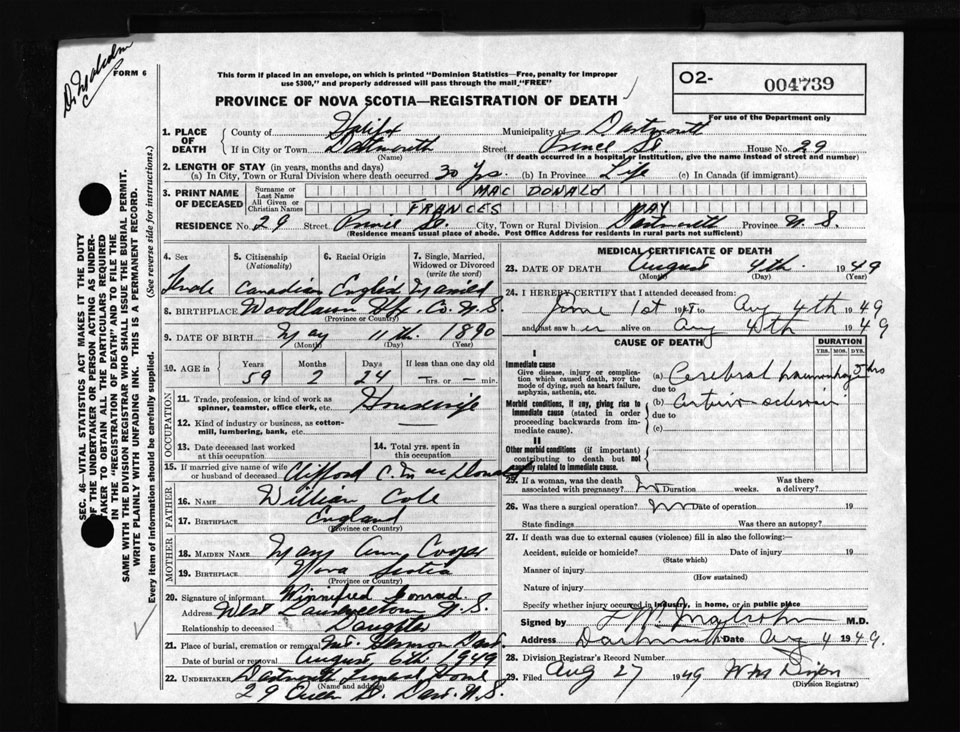 Dr. Malcolm
C
FORM 6
This form if placed in an envelope, on which is printed "Dominion Statistics—Free, penalty for improper
use $300," and properly addressed will pass through the mail "FREE"
PROVINCE OF NOVA SCOTIA—REGISTRATION OF DEATH
O2- 004739
For use of the Department only
1. PLACE OF DEATH County of Halifx Municipality of Dartmouth
If in City or Town Dartmouth Street Prince St. House No. 29
(Name) (If death occurred in a hospital or institution, give the name instead of street and number)
2. LENGTH OF STAY (in years, months and days)
(a) In City, Town or Rural Division where death occurred 30 yrs. (b) In Province Life (c) In Canada (if immigrant)
3. PRINT NAME OF DECEASED Surname or Last Name MAC DONALD
All Given or Christian Names FRANCES MAY
RESIDENCE No. 29 Street Prince St. City, Town or Rural Division Dartmouth Province N.S.
(Residence means usual place of abode. Post Office Address for residents in rural parts not sufficient)
4. Sex 5. Citizenship (Nationality) 6. Racial Origin 7. Single, Married, Widowed or Divorced (write the word)
Canadian English Married
8. BIRTHPLACE Woodlawn Hfx. Co. N.S.
(Province or Country)
9. DATE OF BIRTH May 11th. 1890
(Month) (Day) (Year)
10. AGE in Years Months Days If less than one day old
59 2 24 — hrs. or — min.
OCCUPATION
11. Trade, profession, or kind of work as spinner, teamster, office clerk, etc. Housewife
12. Kind of industry or business, as cotton-mill, lumbering, bank, etc. —
13. Date deceased last worked at this occupation 14. Total yrs. spent in this occupation
15. If married give name of wife or husband of deceased Clifford C. MacDonald
FATHER
16. NAME William Cole
17. BIRTHPLACE England
(Province or Country)
MOTHER
18. MAIDEN NAME Mary Ann Cooper
19. BIRTHPLACE Nova Scotia
(Province or Country)
20. Signature of informant Winnifred Conrad
Address West Lawrencetown N.S.
Relationship to deceased Daughter
21. Place of burial, cremation or removal Mt. Hermon Dart.
Date of burial or removal August 6th 1949
22. UNDERTAKER Dartmouth Funeral Home
(Name and address)
29 Queen St. Dart. N.S.
MEDICAL CERTIFICATE OF DEATH
23. DATE OF DEATH August 4th. 1949
(Month) (Day)
24. I HEREBY CERTIFY that I attended deceased from:
June 1st to Aug 4th 1949
and last saw her alive on Aug 4th 1949
CAUSE OF DEATH DURATION
YRS. MOS. DYS.
I
Immediate cause
Give disease, injury or complication which caused death, NOT the mode of dying, such as heart failure, asphyxia, asthenia, etc.
(a) Cerebral haemorrhage hrs
due to
Morbid conditions, if any, giving rise to immediate cause (stated in order proceeding backwards from immediate cause).
(b)
due to
(c)
II
Other morbid conditions (if important) contributing to death but not causally related to immediate cause.
25. If a woman, was the death associated with pregnancy? No Duration weeks. Was there a delivery?
26. Was there a surgical operation? No Date of operation 19
State findings Was there an autopsy?
27. If death was due to external causes (violence) fill in also the following:—
Accident, suicide or homicide? Date of injury 19
(State which)
Manner of injury
(How sustained)
Nature of injury
Specify whether injury occurred in industry, in home, or in public place
Signed by M.D.
Address Dartmouth Date Aug 4 1949.
28. Division Registrar's Record Number
29. Filed Aug 27 1949 Wm Dixon
(Division Registrar)
SEC. 46—VITAL STATISTICS ACT MAKES IT THE DUTY
OF THE UNDERTAKER OR PERSON ACTING AS UNDER-
TAKER TO OBTAIN ALL THE PARTICULARS REQUIRED
IN THE "REGISTRATION OF DEATH" AND TO FILE THE
SAME WITH THE DIVISION REGISTRAR WHO SHALL ISSUE THE BURIAL PERMIT.
WRITE PLAINLY WITH UNFADING INK. THIS IS A PERMANENT RECORD.
Every item of information should be carefully supplied. (See reverse side for instructions.)